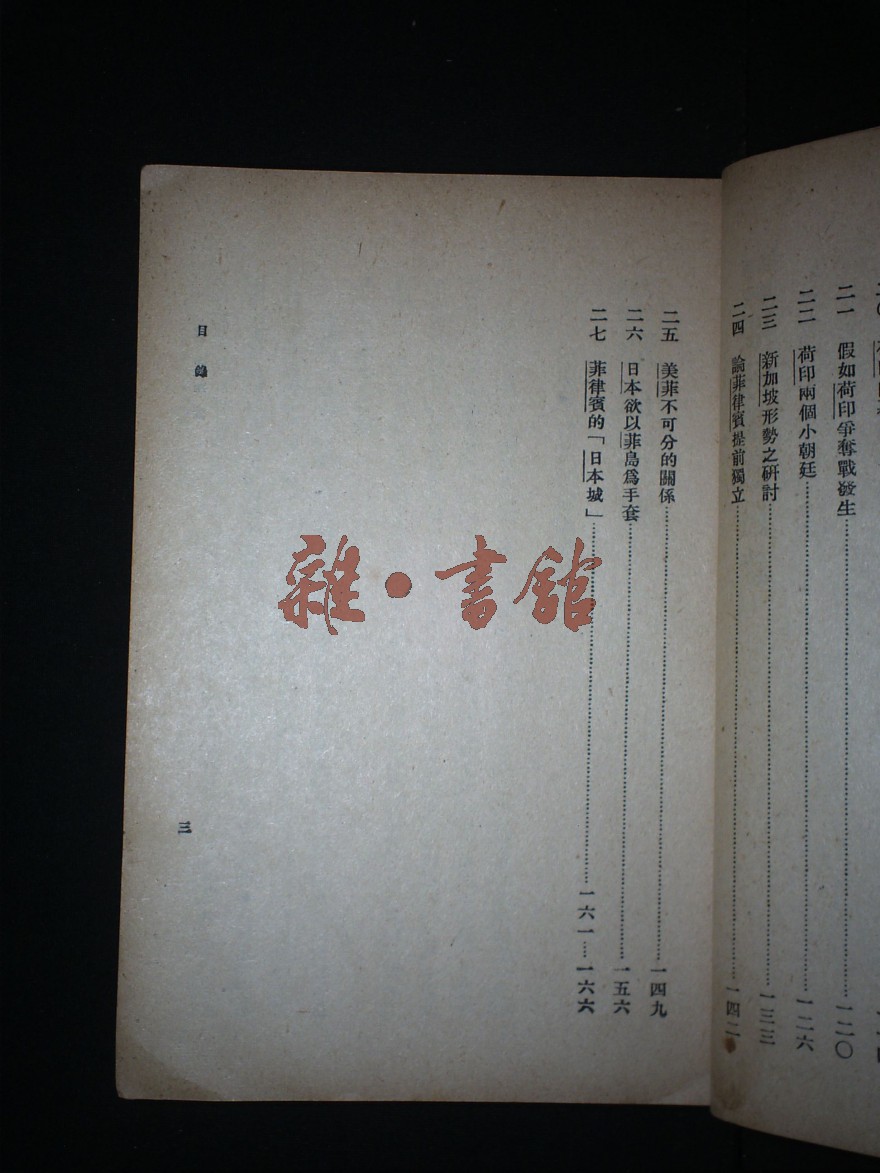 二一 假如荷印爭奪戰發生……一二〇
二二 荷印兩個小朝廷……一二六
二三 新加坡形勢之研討……一三三
二四 論菲律賓提前獨立……一四二
二五 美菲不可分的關係……一四九
二六 日本欲以菲島爲手套……一五六
二七 菲律賓的「日本城」……一六一……一六六
目錄
三
雜·書館